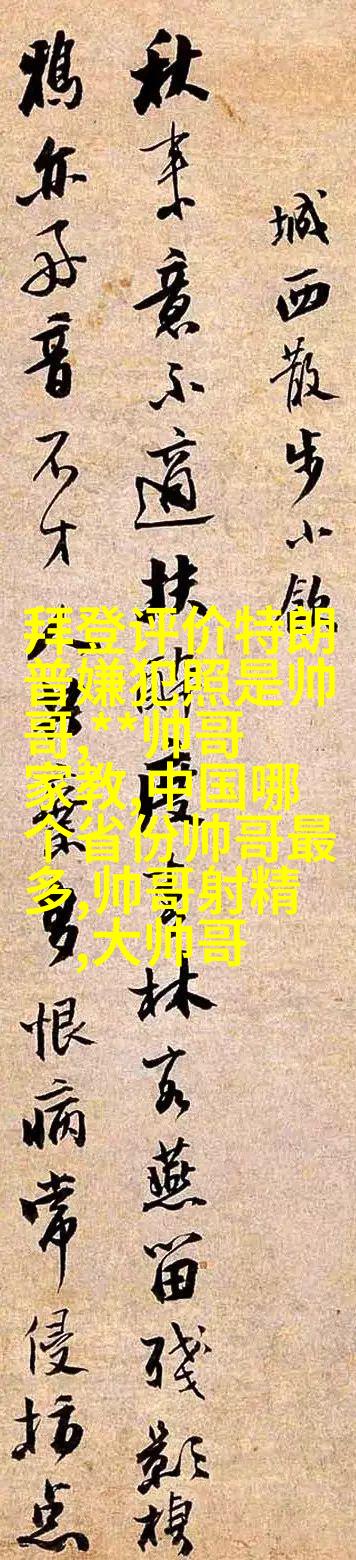 城西散步小
秋来意不適扶林燕留残影
鴉亦好音不才多恨病常侵
拜登评价特朗
普嫌犯照是帅
哥,**帅哥
家教,中国哪
个省份帅哥最
多,帅哥射精
,大帅哥